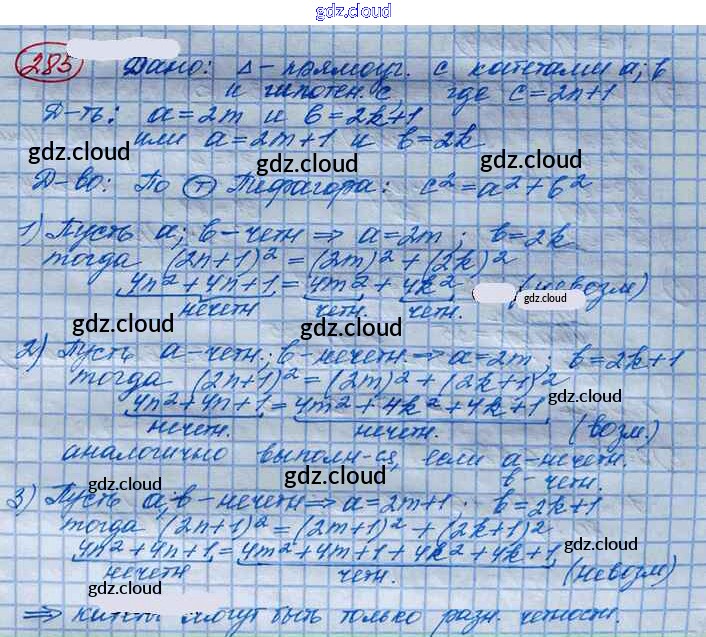 gdz.cloud
285 Дано: Δ - прямоуг. с катетами a; b
и гипотен. c, где c = 2n+1
Д-ть: a = 2m и b = 2k+1
или a = 2m+1 и b = 2k
gdz.cloud gdz.cloud gdz.cloud
Д-во: По Т Пифагора: c² = a² + b²
1) Пусть a; b - четн ⇒ a = 2m ; b = 2k
тогда (2n+1)² = (2m)² + (2k)²
4n² + 4n + 1 = 4m² + 4k² (невозм)
нечетн четн. четн. gdz.cloud
gdz.cloud gdz.cloud
2) Пусть a - четн.; b - нечетн. ⇒ a = 2m ; b = 2k+1
тогда (2n+1)² = (2m)² + (2k+1)²
gdz.cloud
4n² + 4n + 1 = 4m² + 4k² + 4k + 1
нечетн. нечетн. (возм.)
аналогично выполн-ся, если a - нечетн.
b - четн.
gdz.cloud gdz.cloud
3) Пусть a; b - нечетн ⇒ a = 2m+1 ; b = 2k+1
тогда (2n+1)² = (2m+1)² + (2k+1)²
4n² + 4n + 1 = 4m² + 4m + 1 + 4k² + 4k + 1
gdz.cloud
нечетн четн. (невозм)
gdz.cloud
⇒ катеты могут быть только разн. четности.